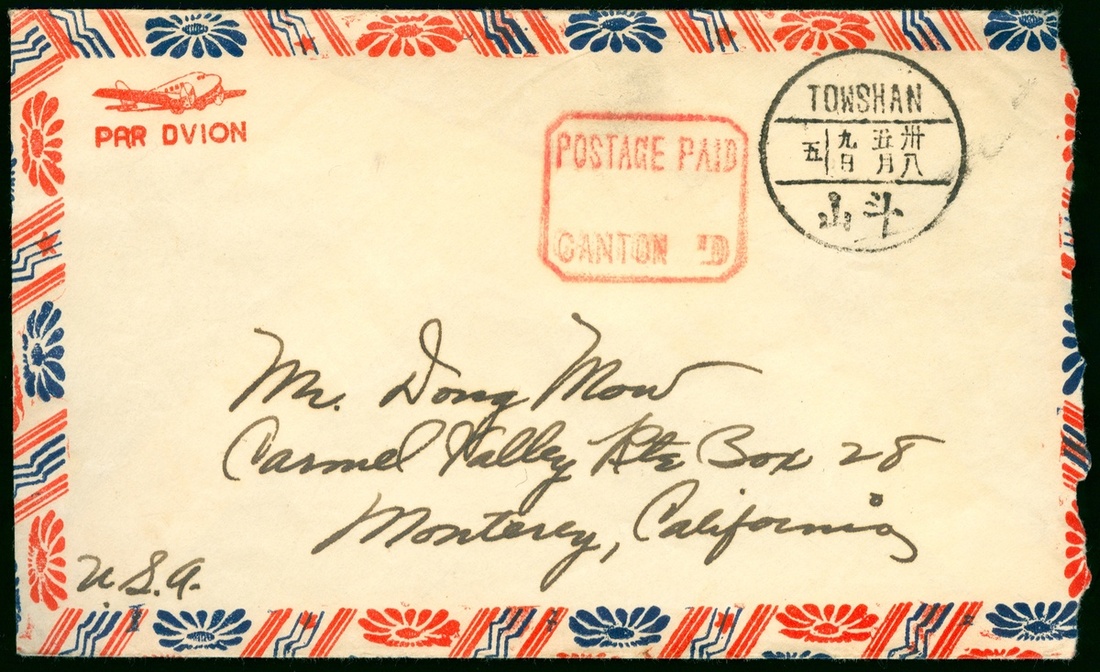 PAR DVION
POSTAGE PAID
CANTON
TOWSHAN
卅八
五月
九日
五
斗山
Mr. Dong Mow
Carmel Valley Rte Box 28
Monterey, California
U.S.A.